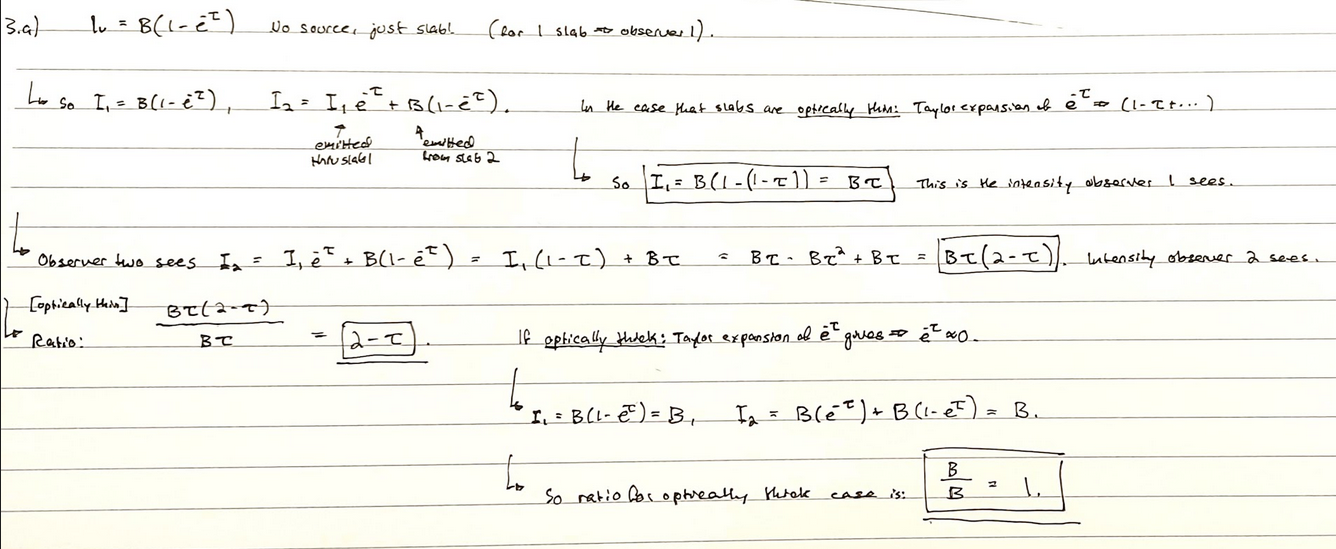 3.a) Iν = B(1-e^-τ) No source, just slab! (for 1 slab ⇒ observer 1).
↳ So I₁ = B(1-e^-τ), I₂ = I₁ e^-τ + B(1-e^-τ). In the case that slabs are optically thin: Taylor expansion of e^-τ ⇒ (1-τ+...)
↑ emitted thru slab 1
↑ emitted from slab 2
↳ So I₁ = B(1-(1-τ)) = Bτ This is the intensity observer 1 sees.
↳ Observer two sees I₂ = I₁ e^-τ + B(1-e^-τ) = I₁(1-τ) + Bτ = Bτ - Bτ² + Bτ = Bτ(2-τ). Intensity observer 2 sees.
↳ [optically thin] Ratio: Bτ(2-τ) / Bτ = 2-τ.
If optically thick: Taylor expansion of e^-τ gives ⇒ e^-τ ≈ 0.
↳ I₁ = B(1-e^-τ) = B, I₂ = B(e^-τ) + B(1-e^-τ) = B.
↳ So ratio for optically thick case is: B/B = 1.